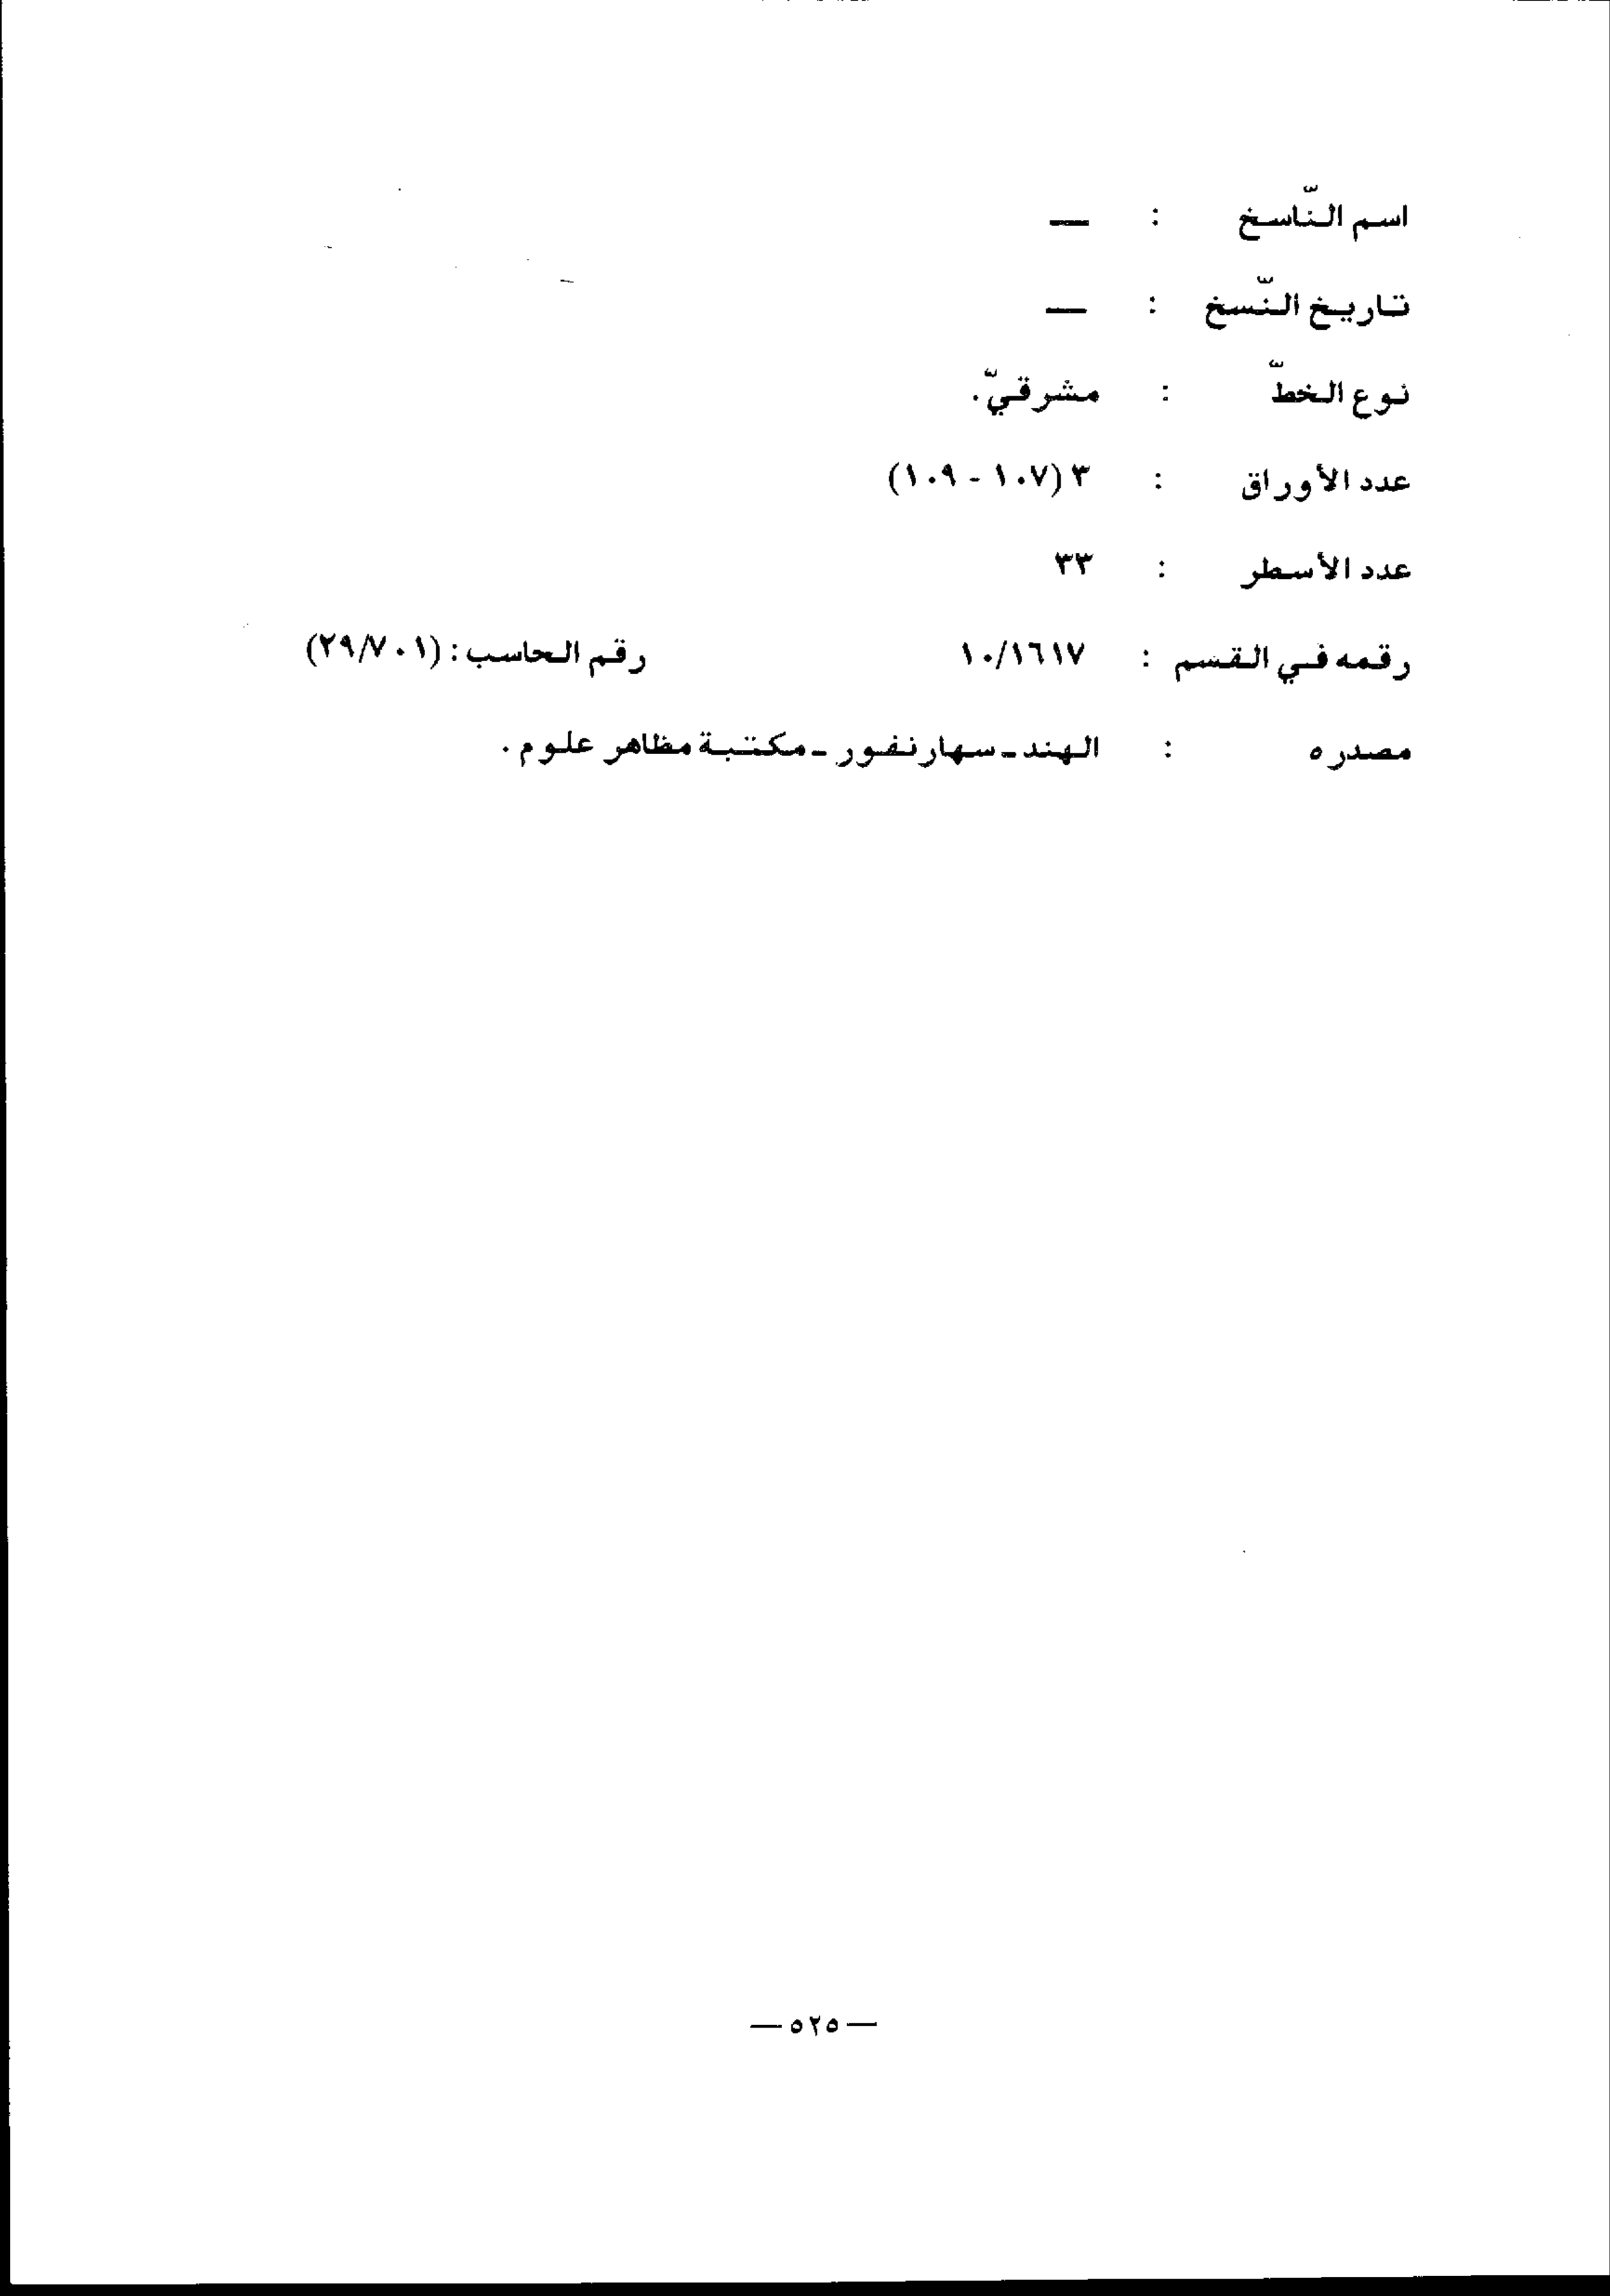 اسم النّاسخ : —
تاريخ النّسخ : —
نوع الخطّ : مشرقيّ.
عدد الأوراق : ٣ (١٠٧ - ١٠٩)
عدد الأسطر : ٣٣
رقمه في القسم : ١٠/١٦١٧ رقم الحاسب : (٢٩/٧٠١)
مصدره : الهند ـ سهارنفور ـ مكتبة مظاهر علوم.
— ٥٢٥ —